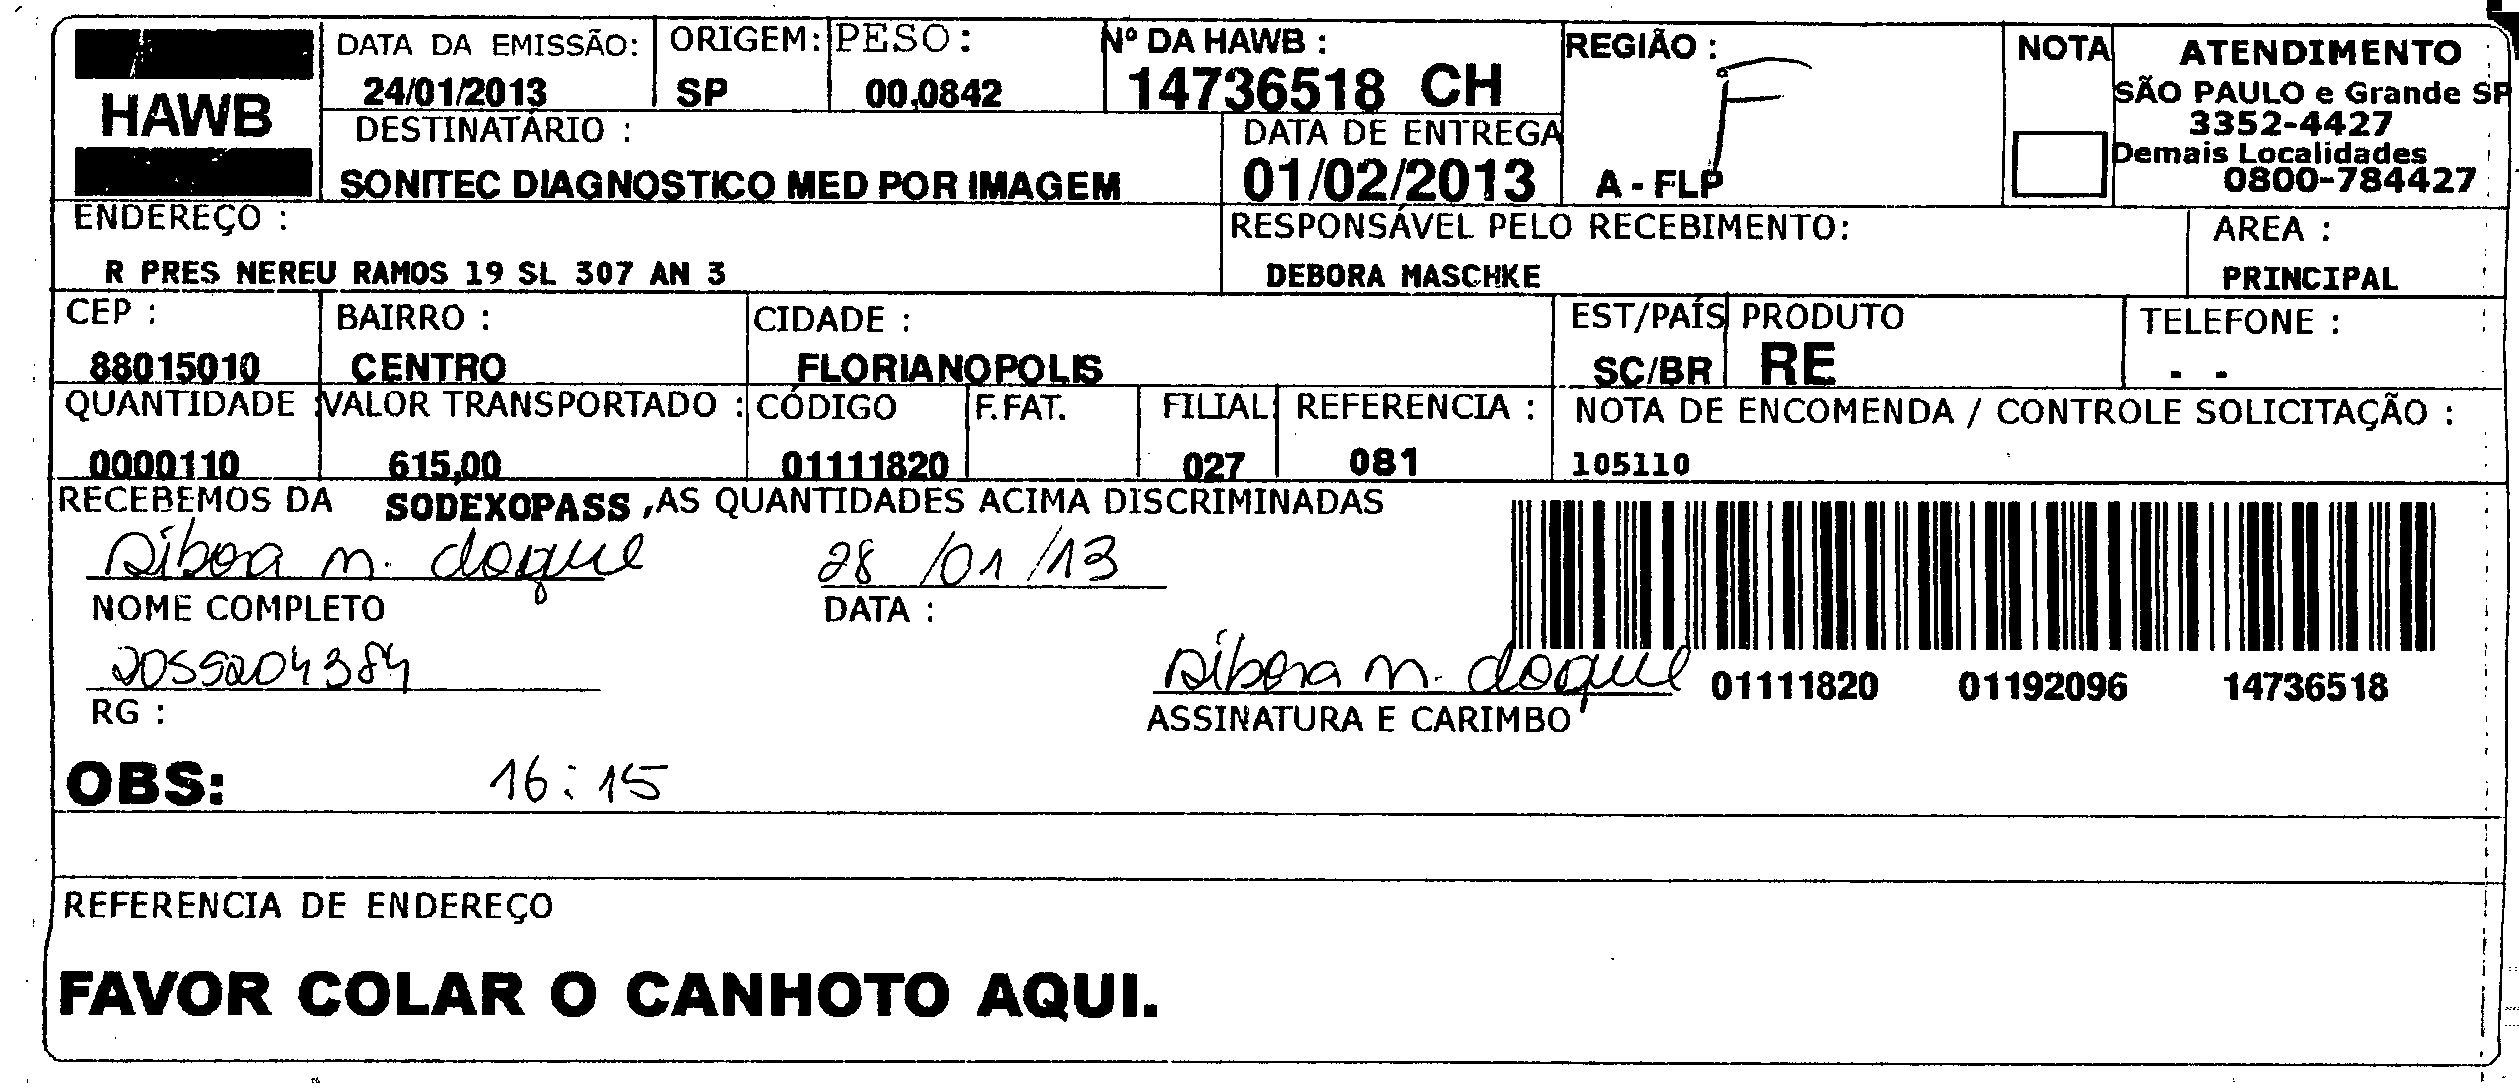 HAWB
DATA DA EMISSÃO:
24/01/2013
ORIGEM:
SP
PESO :
00,0842
Nº DA HAWB :
14736518 CH
REGIÃO :
F
A - FLP
NOTA
ATENDIMENTO
SÃO PAULO e Grande SP
3352-4427
Demais Localidades
0800-784427
DESTINATÁRIO :
SONITEC DIAGNOSTICO MED POR IMAGEM
DATA DE ENTREGA
01/02/2013
ENDEREÇO :
R PRES NEREU RAMOS 19 SL 307 AN 3
RESPONSÁVEL PELO RECEBIMENTO:
DEBORA MASCHKE
AREA :
PRINCIPAL
CEP :
88015010
BAIRRO :
CENTRO
CIDADE :
FLORIANOPOLIS
EST/PAÍS
SC/BR
PRODUTO
RE
TELEFONE :
- -
QUANTIDADE
0000110
VALOR TRANSPORTADO :
615,00
CÓDIGO
01111820
F.FAT.
FILIAL
027
REFERENCIA :
081
NOTA DE ENCOMENDA / CONTROLE SOLICITAÇÃO :
105110
RECEBEMOS DA SODEXOPASS ,AS QUANTIDADES ACIMA DISCRIMINADAS
28/01/13
NOME COMPLETO
DATA :
2055204384
RG :
ASSINATURA E CARIMBO
01111820 01192096 14736518
OBS: 16:15
REFERENCIA DE ENDEREÇO
FAVOR COLAR O CANHOTO AQUI.